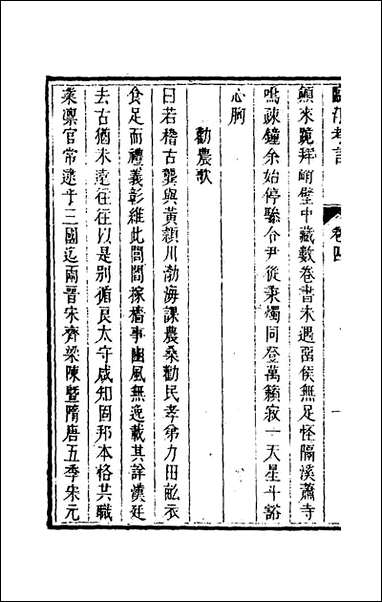 臨漳考言 卷四 一
顛來跪拜峭壁中藏數卷書未遇留侯無足怪隔溪蕭寺
鳴疎鐘余始停驂令尹從秉燭同登萬籟寂一天星斗豁
心胸
勸農歌
曰若稽古龔與黃潁川渤海課農桑勸民孝弟力田畝衣
食足而禮義彰維此閭閻稼穡事豳風無逸載其詳漢廷
去古猶未遠往往以是別循良太守咸知固邦本格共職
業稟官常遞乎三國迄兩晉宋齊梁陳暨隋唐五季宋元